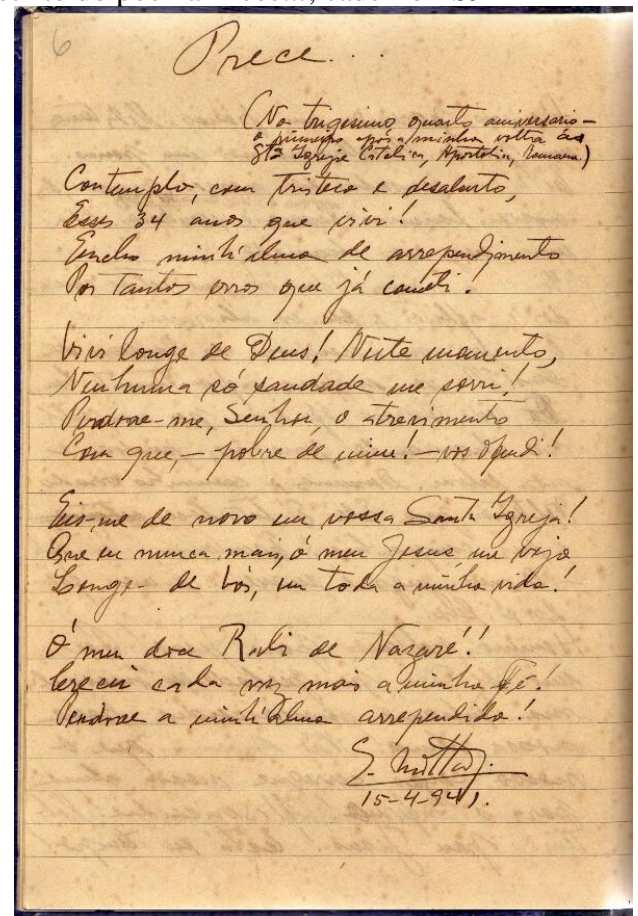 6
Prece...
(No trigesimo quarto aniversario –
o primeiro após a minha volta ás
Sta Igreja Catolica, Apostolica, Romana.)
Contemplo, com tristeza e desalento,
Esses 34 anos que vivi!
Encho minh'alma de arrependimento
Por tantos erros que já cometi.
Vivi longe de Deus! Neste momento,
Nenhuma só saudade me sorri!
Perdoae-me, Senhor, o atrevimento
Com que, – pobre de mim! – vos ofendi!
Eis-me de novo em vossa Santa Igreja!
Que eu nunca mais, ó meu Jesus me veja
Longe de Vós, em toda a minha vida!
Ó meu doce Rabi de Nazaré!!
Crecei cada vez mais a minha Fé!
Perdoae a minh'alma arrependida!
15-4-941.